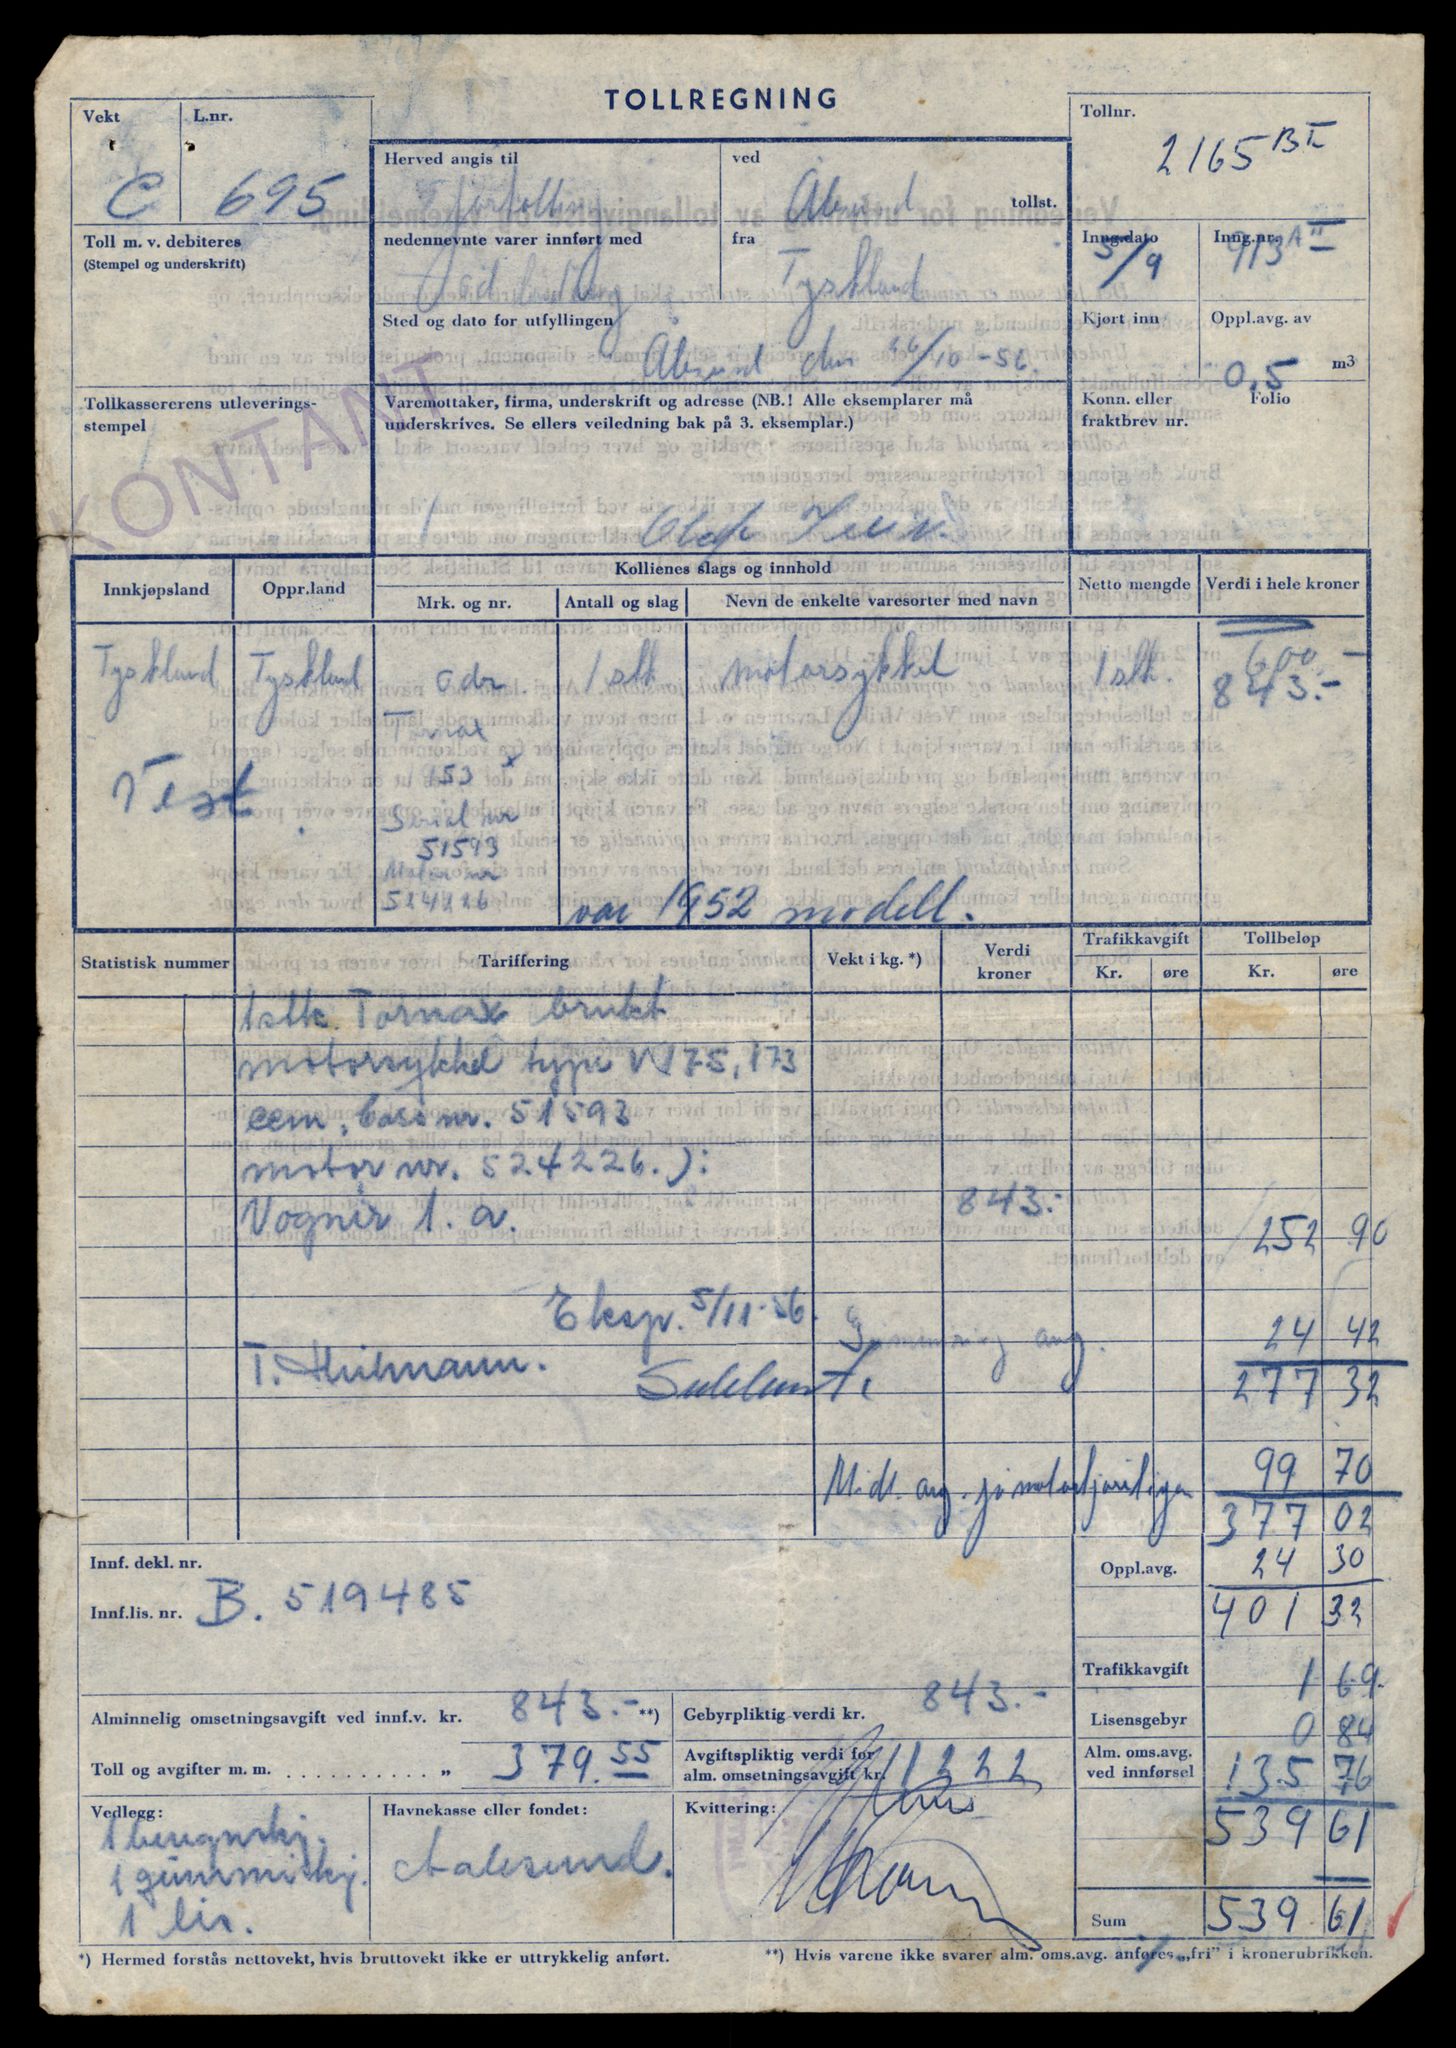 TOLLREGNING
Vekt
L.nr.
C
695
Tollnr.
2165 BI
Herved angis til
ved
fortolling
Ålesund
tollst.
Toll m. v. debiteres
(Stempel og underskrift)
nedennevnte varer innført med
fra
Tyskland
Inng.dato
Inng.nr.
5/9
913 A II
Sted og dato for utfyllingen
Ålesund den 26/10-56.
Kjørt inn
Oppl.avg. av
0,5 m3
Tollkassererens utleverings-
stempel
KONTANT
Varemottaker, firma, underskrift og adresse (NB.! Alle eksemplarer må
underskrives. Se ellers veiledning bak på 3. eksemplar.)
Konn. eller
fraktbrev nr.
Folio
Innkjøpsland
Oppr.land
Kollienes slags og innhold
Mrk. og nr.
Antall og slag
Nevn de enkelte varesorter med navn
Netto mengde
Verdi i hele kroner
Tyskland
Tyskland
adr
1 stk
motorsykkel
1 stk.
600 -
843.-
Tornax
Vest
153
Serial nr
51593
Motor nr
524226
var 1952 modell.
Statistisk nummer
Tariffering
Vekt i kg. *)
Verdi
kroner
Trafikkavgift
Kr. øre
Tollbeløp
Kr. øre
1 stk. Tornax brukt
motorsykkel type V 175, 173
ccm, Cass nr. 51593
motor nr. 524226.):
Vogner 1. a.
843.-
252 90
Eksp. 5/11-56.
24 42
277 32
Midl. avg. på motorkjøretøyer
99 70
377 02
Innf. dekl. nr.
Oppl.avg.
24 30
Innf.lis. nr. B. 519485
401 32
Trafikkavgift
1 69.
Alminnelig omsetningsavgift ved innf.v. kr. 843.- **)
Gebyrpliktig verdi kr. 843.-
Lisensgebyr
0 84
Toll og avgifter m. m. . . . . . . . . . . „ 379.55
Avgiftspliktig verdi for
alm. omsetningsavgift kr. 1222
Alm. oms.avg.
ved innførsel
135 76
Vedlegg:
Havnekasse eller fondet:
Kvittering:
539 61
1 gummiskj.
1 lis.
Aalesund.
Sum
539 61
*) Hermed forstås nettovekt, hvis bruttovekt ikke er uttrykkelig anført.
**) Hvis varene ikke svarer alm. oms.avg. anføres „fri” i kronerubrikken.